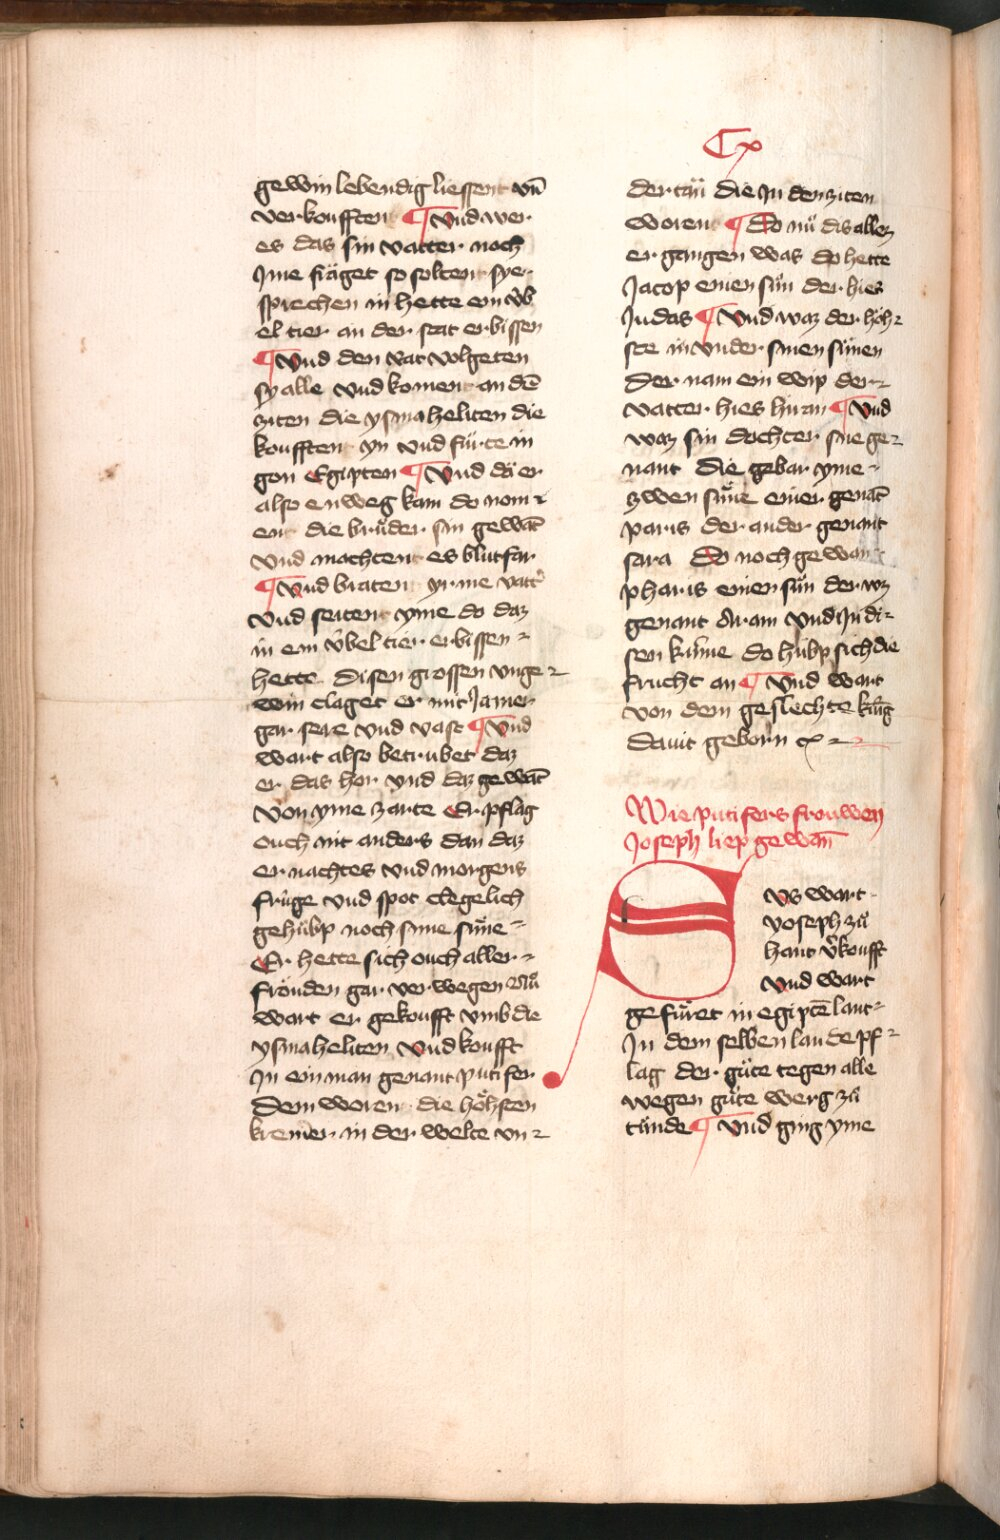 Cx
gewin lebendig liessent vn̄
verkoufften ¶ Vnd wer
es das sin vatter noch
Jme fraͤget so soltent sye
sprechen in hette ein vͤb
el tier an der stat erbissen
¶ Vnd den rat volgeten
sy alle vnd koment an dē
ziten die ysmaheliten die
koufften yn vnd fuͤrte in
gon Egipten ¶ Vnd da er
also enweg kam do nom
ent die bruͤder sin gewāt
vnd machtent es blutfar
¶ Vnd braten yrme vatt
vnd seitent yme do daz
in ein vͤbel tier erbissen
hette Disen grossen vnge
win claget er mit Jamer
gar sere vnd vast ¶ Vnd
wart also betrubet daz
er das hor vnd daz gewāt
von yme zarte Er pflag
ouch nit anders dan daz
er nachtes vnd morgens
fruͤge vnd spot clegelich
gehuͤbp noch sime suͤne
Er hette sich ouch aller
froͤuden gar verwegen Nuͦ
wart er gekoufft vmb die
ysmaheliten vnd koufft
Jn ein man genant putifer
Dem woren die hoͤhsten
kremer in der welte vn
der tan die Jn den ziten
woren ¶ Do nuͦ dis allez
ergangen was do hette
Jacop einen suͦn der hies
Judas ¶ Vnd waz der hoͤh
ste in vnder sinen suͤnen
Der nam ein wip der
vatter hies hiran ¶ Vnd
waz sin dochter sue ge
nant Die gebar yme
zwen suͤne einer genāt
paris der ander genant
sara Do noch gewan
pharis einen suͦn der wz
genant Aram vnd Jn di
sen kuͤnne do huͤbp sich die
frucht an ¶ Vnd wart
von dem geslechte kuͤnig
Dauit geborn
Wie putifers frouwen
Joseph liep gewan
SVs wart
yoseph zuͦ
hant v̄koufft
vnd wart
gefuͤret in egiptē lant
Jn dem selben lande pf
lag der guͤte tegen alle
wegen guͤte werg zuͦ
tuͤnde ¶ Vnd ging yme